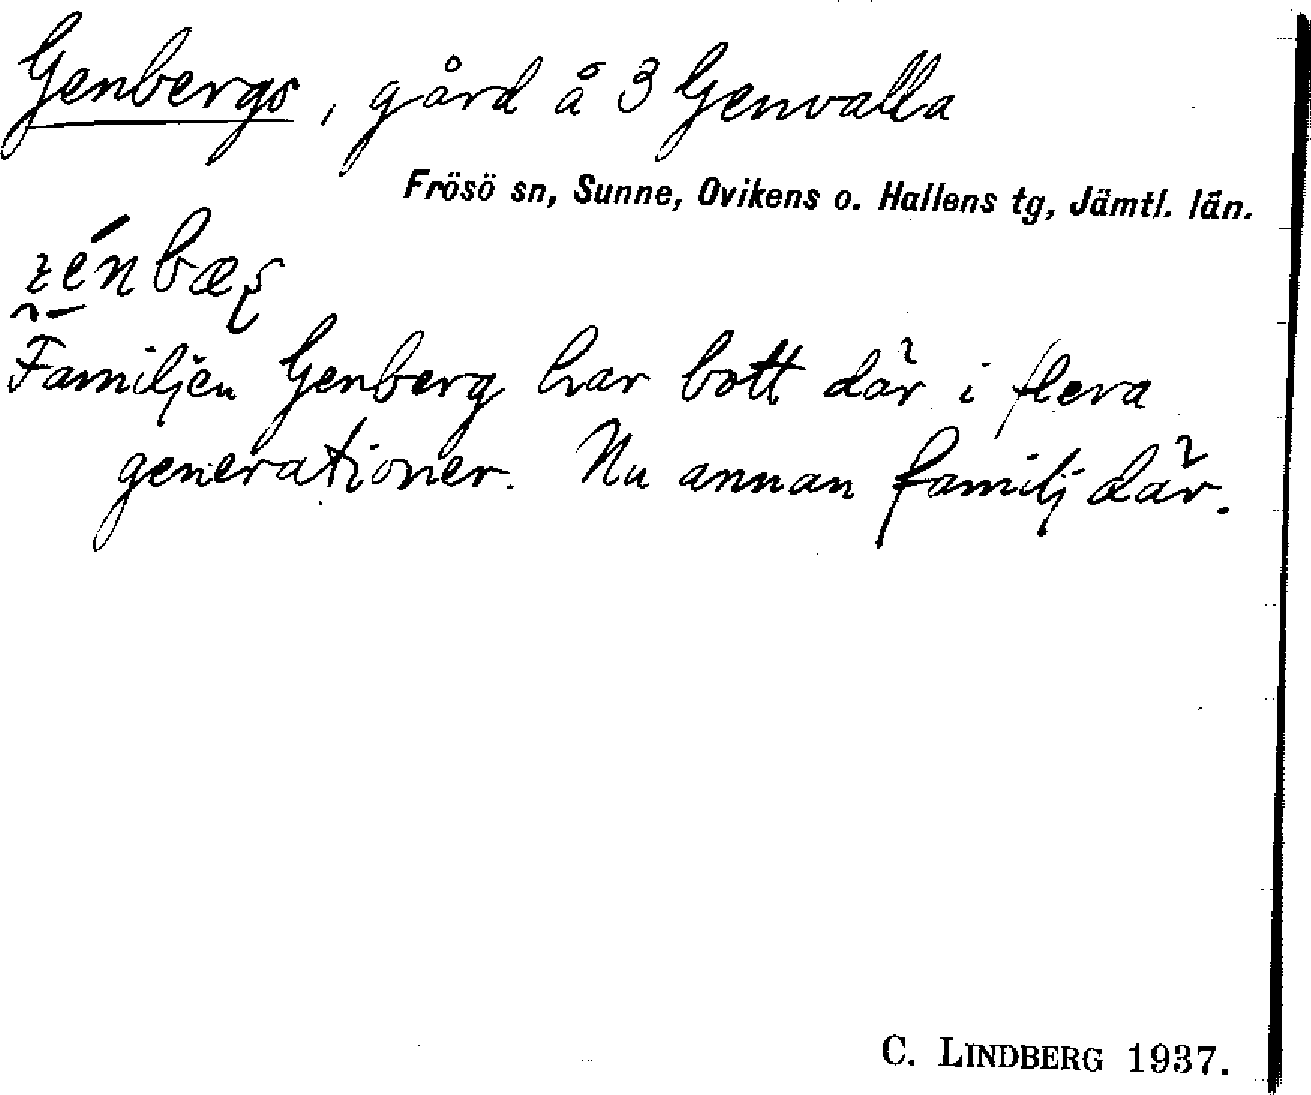 Genbergs, gård å 3 Genvalla
Frösö sn, Sunne, Ovikens o. Hallens tg, Jämtl. län.
Familjen Genberg har bott där i flera
generationer. Nu annan familj där.
C. LINDBERG 1937.